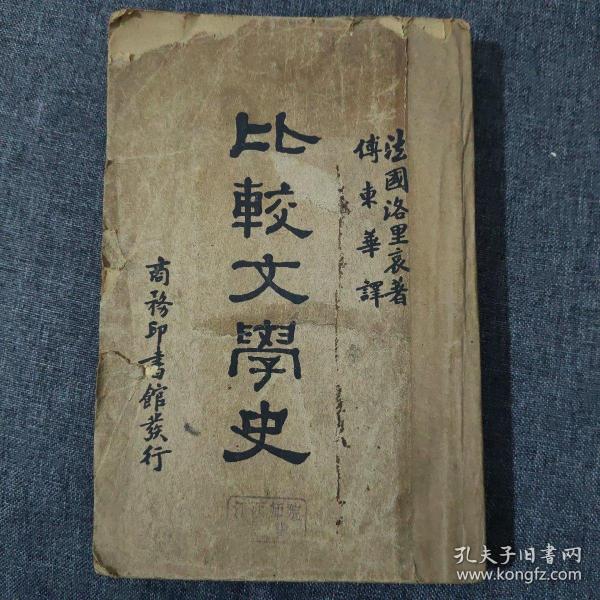 法國洛里哀著
傅東華譯
比較文學史
商務印書館發行
江西師院
孔夫子旧书网
www.kongfz.com